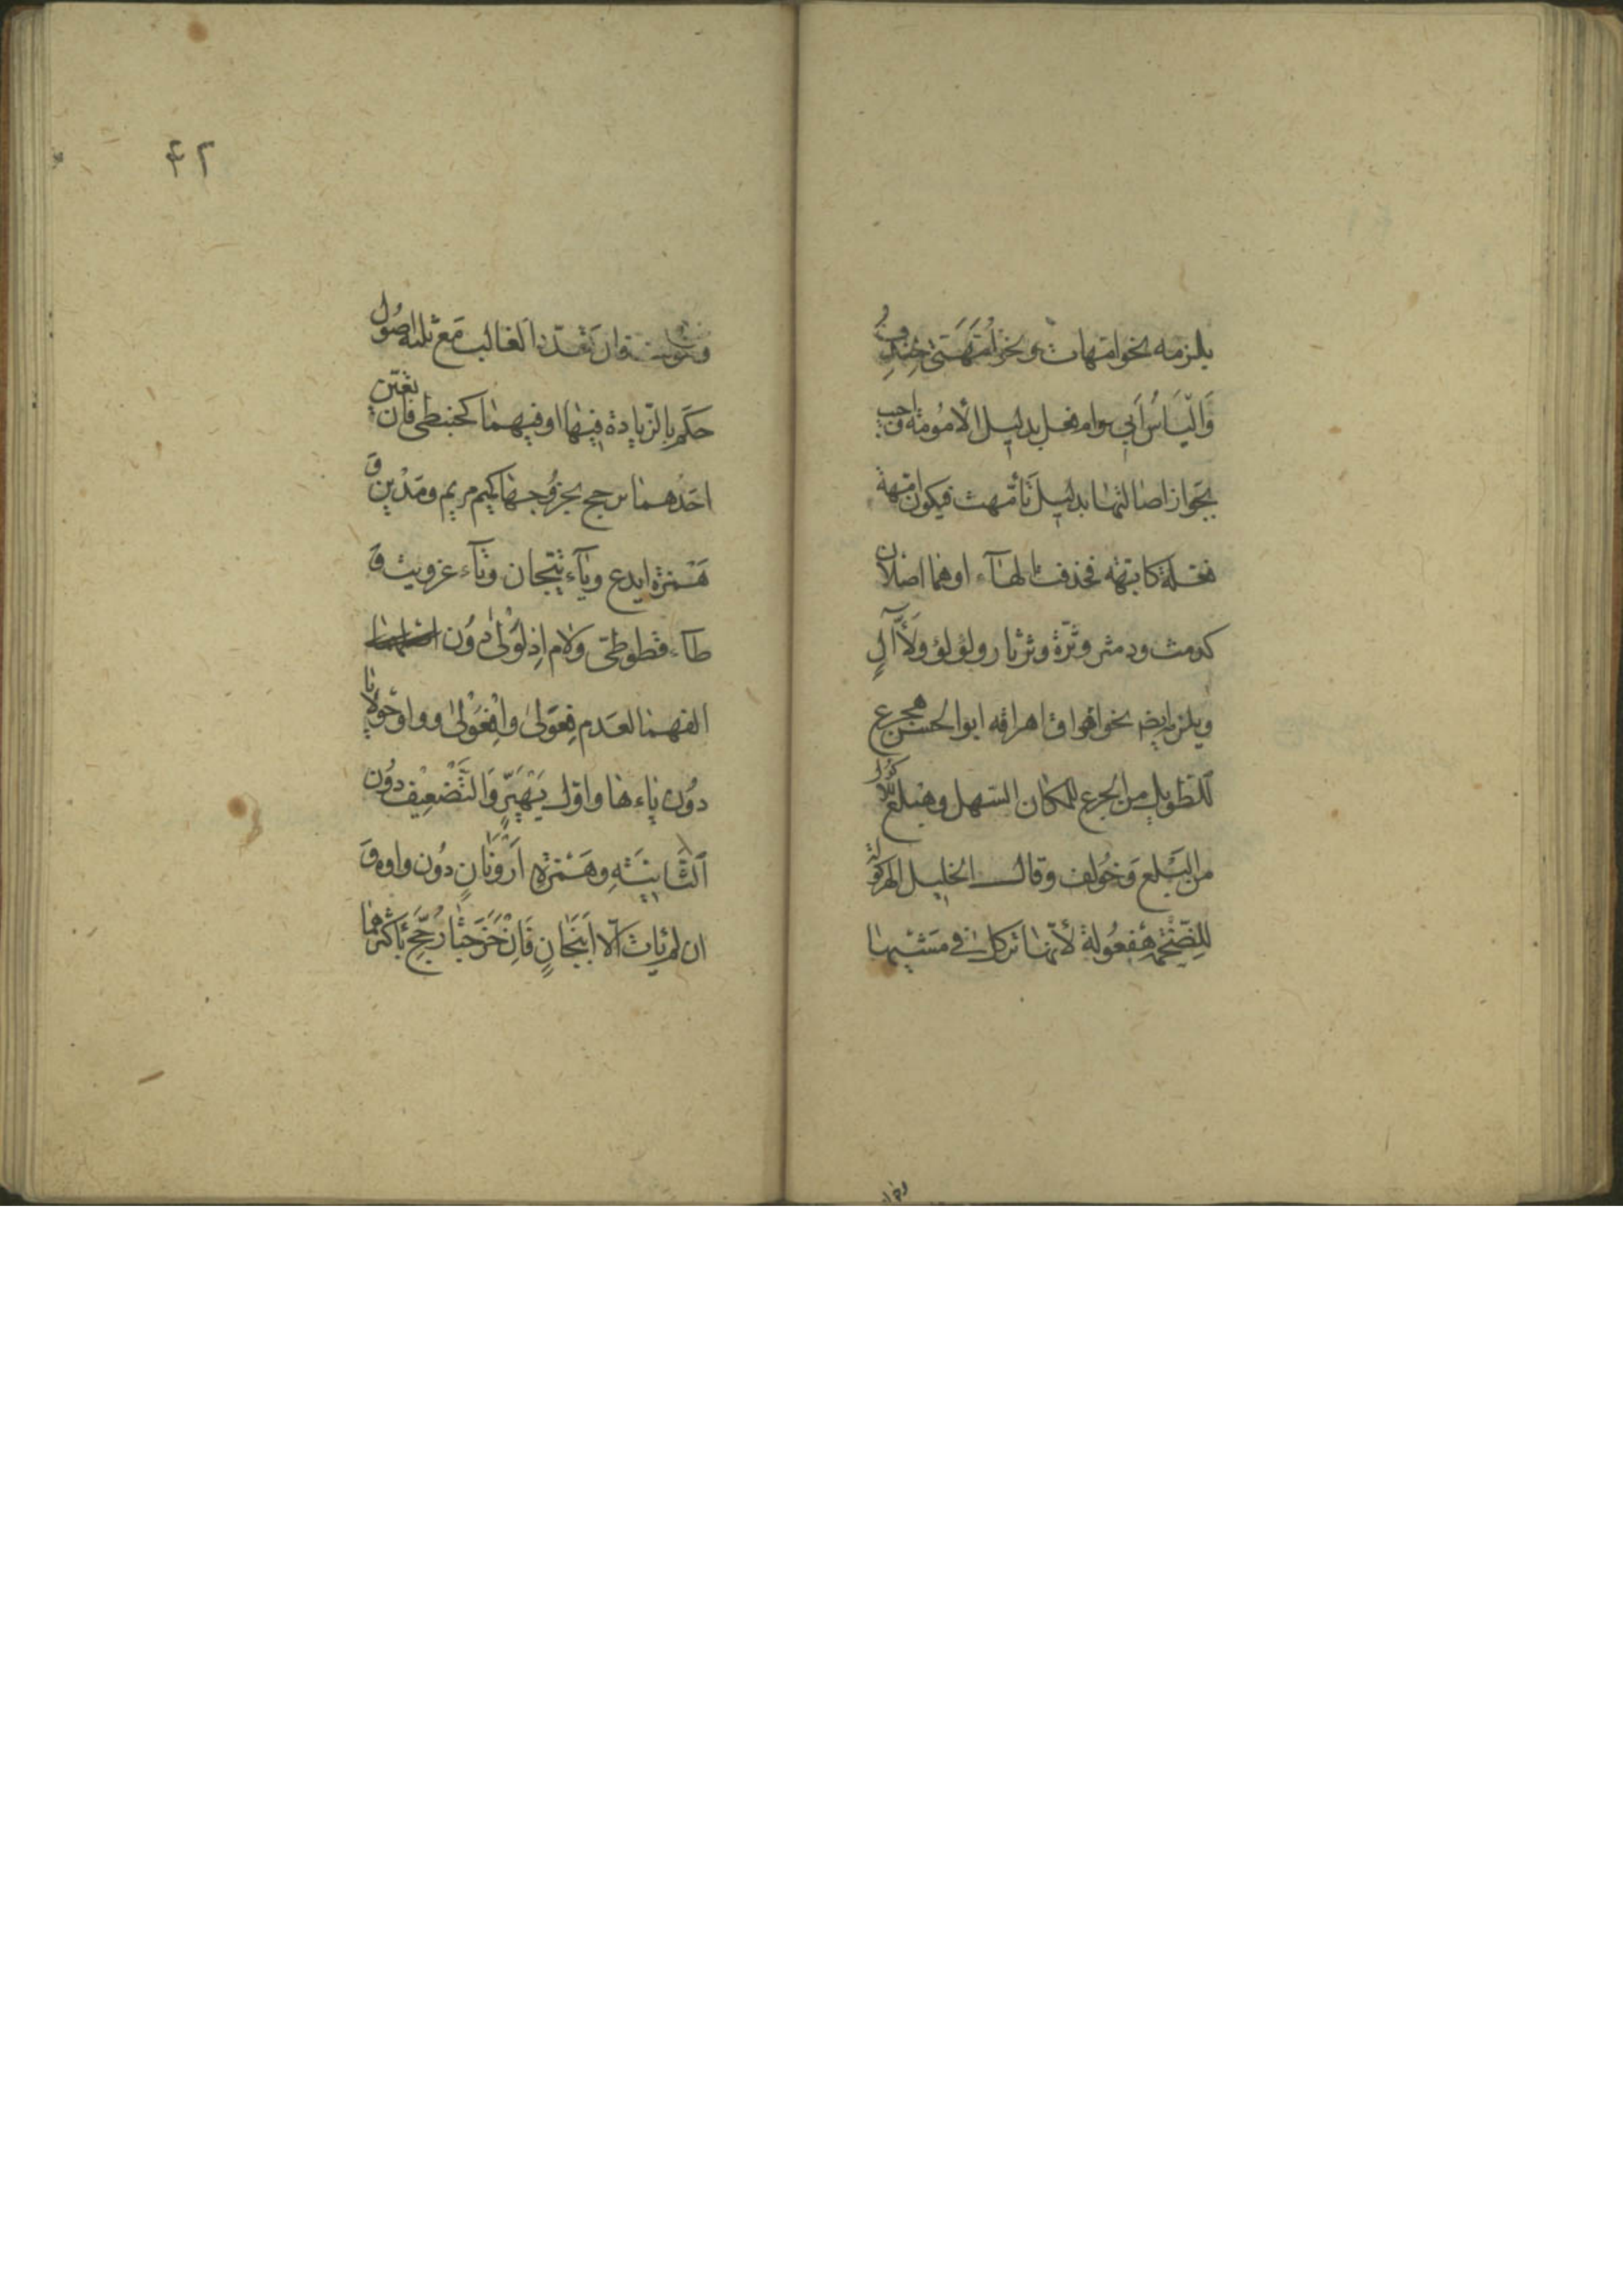 يلزمه نحو امهات ونحو اُمَّهَتِى خِنْدِفُ
وَالْيَاسُ اَبِى وام فعل بدليل الأمومة واجيب
بجواز اصالتها بدليل تأمّهت فيكون امهة
فعلة كابهة فحذفت الهآء او هما اصلان
كدمث ودمثر وثرّة وثرثار ولؤلؤ ولأّآلٍ
ويلزم ايضا نحو اهراق اهراقه ابو الحسن هجرع
للطويل من الجرع للمكان السهل وهبلع للاكول
من البلع وَخُولف وقال الخليل الهركولة
للضخمة هفعولة لأنها تركل فى مشيها
فان تعدّد الغالب مَع ثلثه اصُول
حكم بالزيادة فيها او فيهما كحبنطى فان تعيّن
احدهما رجح بخروجها كميم مريم ومَدْين وَ
هَمْزة ايدع وياَء تيّحان وتآء عزويت وَ
طآء قطوطى وَلام اِذلَوْلىٰ دوُن
الفهما لعَدم فِعَوْلىٰ وافْعَوْلىٰ وواو حَولايا
دوُن ياءها واول يَهْيَرٍّ وَالتَّضعِيْف دوُن
الثَّانِيَةِ وهَمْزةِ اَرْوَنَانٍ دوُن واوه وَ
ان لم يات الاّ اَنْبَجَانٍ فَاِنْ خَرَجَتٰا رُجّحِ بأكثرهما
٤٢